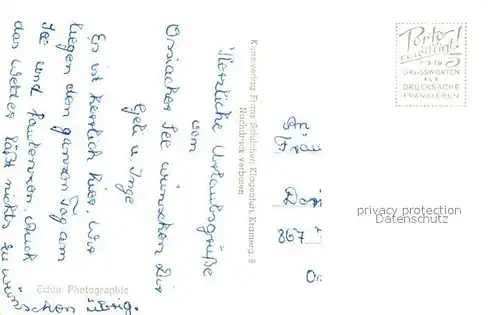 Herzliche Urlaubsgrüße
vom
Ossiacher See wünschen Dir
Geli u. Inge
Es ist herrlich hier. Wir
liegen den ganzen Tag am
See und faulenzen. Auch
das Wetter läßt nichts zu
wünschen übrig.
Echte Photographie
Kunstverlag Franz Schilcher, Klagenfurt, Kramerg. 9
Nachdruck verboten
Porto
verbilligt!
BIS ZU 5
GRUSSWORTEN
ALS
DRUCKSACHE
FRANKIEREN
An
Frau
Dori
867
privacy protection
Datenschutz